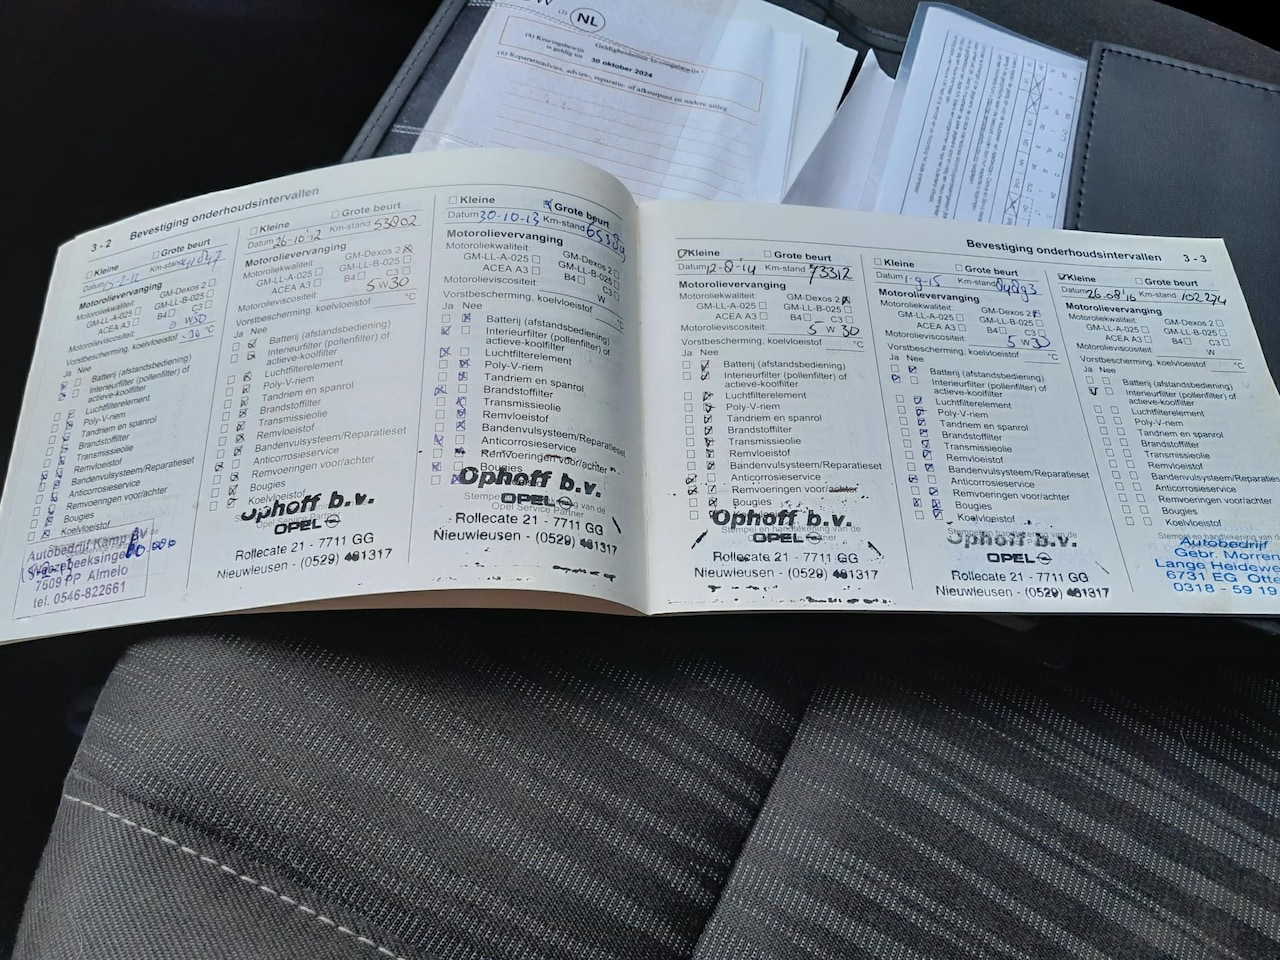 (2) NL
(8) Keuringsbewijs
is geldig tot
30 oktober 2024
(6) Reparatieadvies, advies-, reparatie- of afkeurpunt en nadere uitleg
3 - 2 Bevestiging onderhoudsintervallen
Kleine Grote beurt
Datum Km-stand
Motorolievervanging
Motoroliekwaliteit: GM-Dexos 2
GM-LL-A-025 GM-LL-B-025
ACEA A3 B4 C3
Motorolieviscositeit:
Vorstbescherming, koelvloeistof °C
Ja Nee
Batterij (afstandsbediening)
Interieurfilter (pollenfilter) of
actieve-koolfilter
Luchtfilterelement
Poly-V-riem
Tandriem en spanrol
Brandstoffilter
Transmissieolie
Remvloeistof
Bandenvulsysteem/Reparatieset
Anticorrosieservice
Remvoeringen voor/achter
Bougies
Koelvloeistof
Autobedrijf Kamp BV
7609 PP Almelo
tel. 0546-822661
Kleine Grote beurt
Datum 26-10-'12 Km-stand 53802
Motorolievervanging
Motoroliekwaliteit: GM-Dexos 2
GM-LL-A-025 GM-LL-B-025
ACEA A3 B4 C3
Motorolieviscositeit: 5 W 30
Vorstbescherming, koelvloeistof °C
Ja Nee
Batterij (afstandsbediening)
Interieurfilter (pollenfilter) of
actieve-koolfilter
Luchtfilterelement
Poly-V-riem
Tandriem en spanrol
Brandstoffilter
Transmissieolie
Remvloeistof
Bandenvulsysteem/Reparatieset
Anticorrosieservice
Remvoeringen voor/achter
Bougies
Koelvloeistof
Ophoff b.v.
Opel Service Partner
OPEL
Rollecate 21 - 7711 GG
Nieuwleusen - (0529) 481317
Kleine Grote beurt
Datum 30-10-13 Km-stand
Motorolievervanging
Motoroliekwaliteit: GM-Dexos 2
GM-LL-A-025 GM-LL-B-025
ACEA A3 B4 C3
Motorolieviscositeit: W
Vorstbescherming, koelvloeistof °C
Ja Nee
Batterij (afstandsbediening)
Interieurfilter (pollenfilter) of
actieve-koolfilter
Luchtfilterelement
Poly-V-riem
Tandriem en spanrol
Brandstoffilter
Transmissieolie
Remvloeistof
Bandenvulsysteem/Reparatieset
Anticorrosieservice
Remvoeringen voor/achter
Bougies
Ophoff b.v.
Opel Service Partner
OPEL
Rollecate 21 - 7711 GG
Nieuwleusen - (0529) 481317
Bevestiging onderhoudsintervallen 3 - 3
Kleine Grote beurt
Datum 12-8-'14 Km-stand 73312
Motorolievervanging
Motoroliekwaliteit: GM-Dexos 2
GM-LL-A-025 GM-LL-B-025
ACEA A3 B4 C3
Motorolieviscositeit: 5 W 30
Vorstbescherming, koelvloeistof °C
Ja Nee
Batterij (afstandsbediening)
Interieurfilter (pollenfilter) of
actieve-koolfilter
Luchtfilterelement
Poly-V-riem
Tandriem en spanrol
Brandstoffilter
Transmissieolie
Remvloeistof
Bandenvulsysteem/Reparatieset
Anticorrosieservice
Remvoeringen voor/achter
Bougies
Ophoff b.v.
Stempel en handtekening van de
OPEL
Rollecate 21 - 7711 GG
Nieuwleusen - (0529) 481317
Kleine Grote beurt
Datum 1-9-15 Km-stand
Motorolievervanging
Motoroliekwaliteit: GM-Dexos 2
GM-LL-A-025 GM-LL-B-025
ACEA A3 B4 C3
Motorolieviscositeit: 5 W 30
Vorstbescherming, koelvloeistof °C
Ja Nee
Batterij (afstandsbediening)
Interieurfilter (pollenfilter) of
actieve-koolfilter
Luchtfilterelement
Poly-V-riem
Tandriem en spanrol
Brandstoffilter
Transmissieolie
Remvloeistof
Bandenvulsysteem/Reparatieset
Anticorrosieservice
Remvoeringen voor/achter
Bougies
Koelvloeistof
Ophoff b.v.
OPEL
Rollecate 21 - 7711 GG
Nieuwleusen - (0529) 481317
Kleine Grote beurt
Datum 26.08'16 Km-stand 102274
Motorolievervanging
Motoroliekwaliteit: GM-Dexos 2
GM-LL-A-025 GM-LL-B-025
ACEA A3 B4 C3
Motorolieviscositeit: W
Vorstbescherming, koelvloeistof °C
Ja Nee
Batterij (afstandsbediening)
Interieurfilter (pollenfilter) of
actieve-koolfilter
Luchtfilterelement
Poly-V-riem
Tandriem en spanrol
Brandstoffilter
Transmissieolie
Remvloeistof
Bandenvulsysteem/Reparatieset
Anticorrosieservice
Remvoeringen voor/achter
Bougies
Koelvloeistof
Autobedrijf
Gebr. Morren
Lange Heidewe
6731 EG Otte
0318 - 59 19